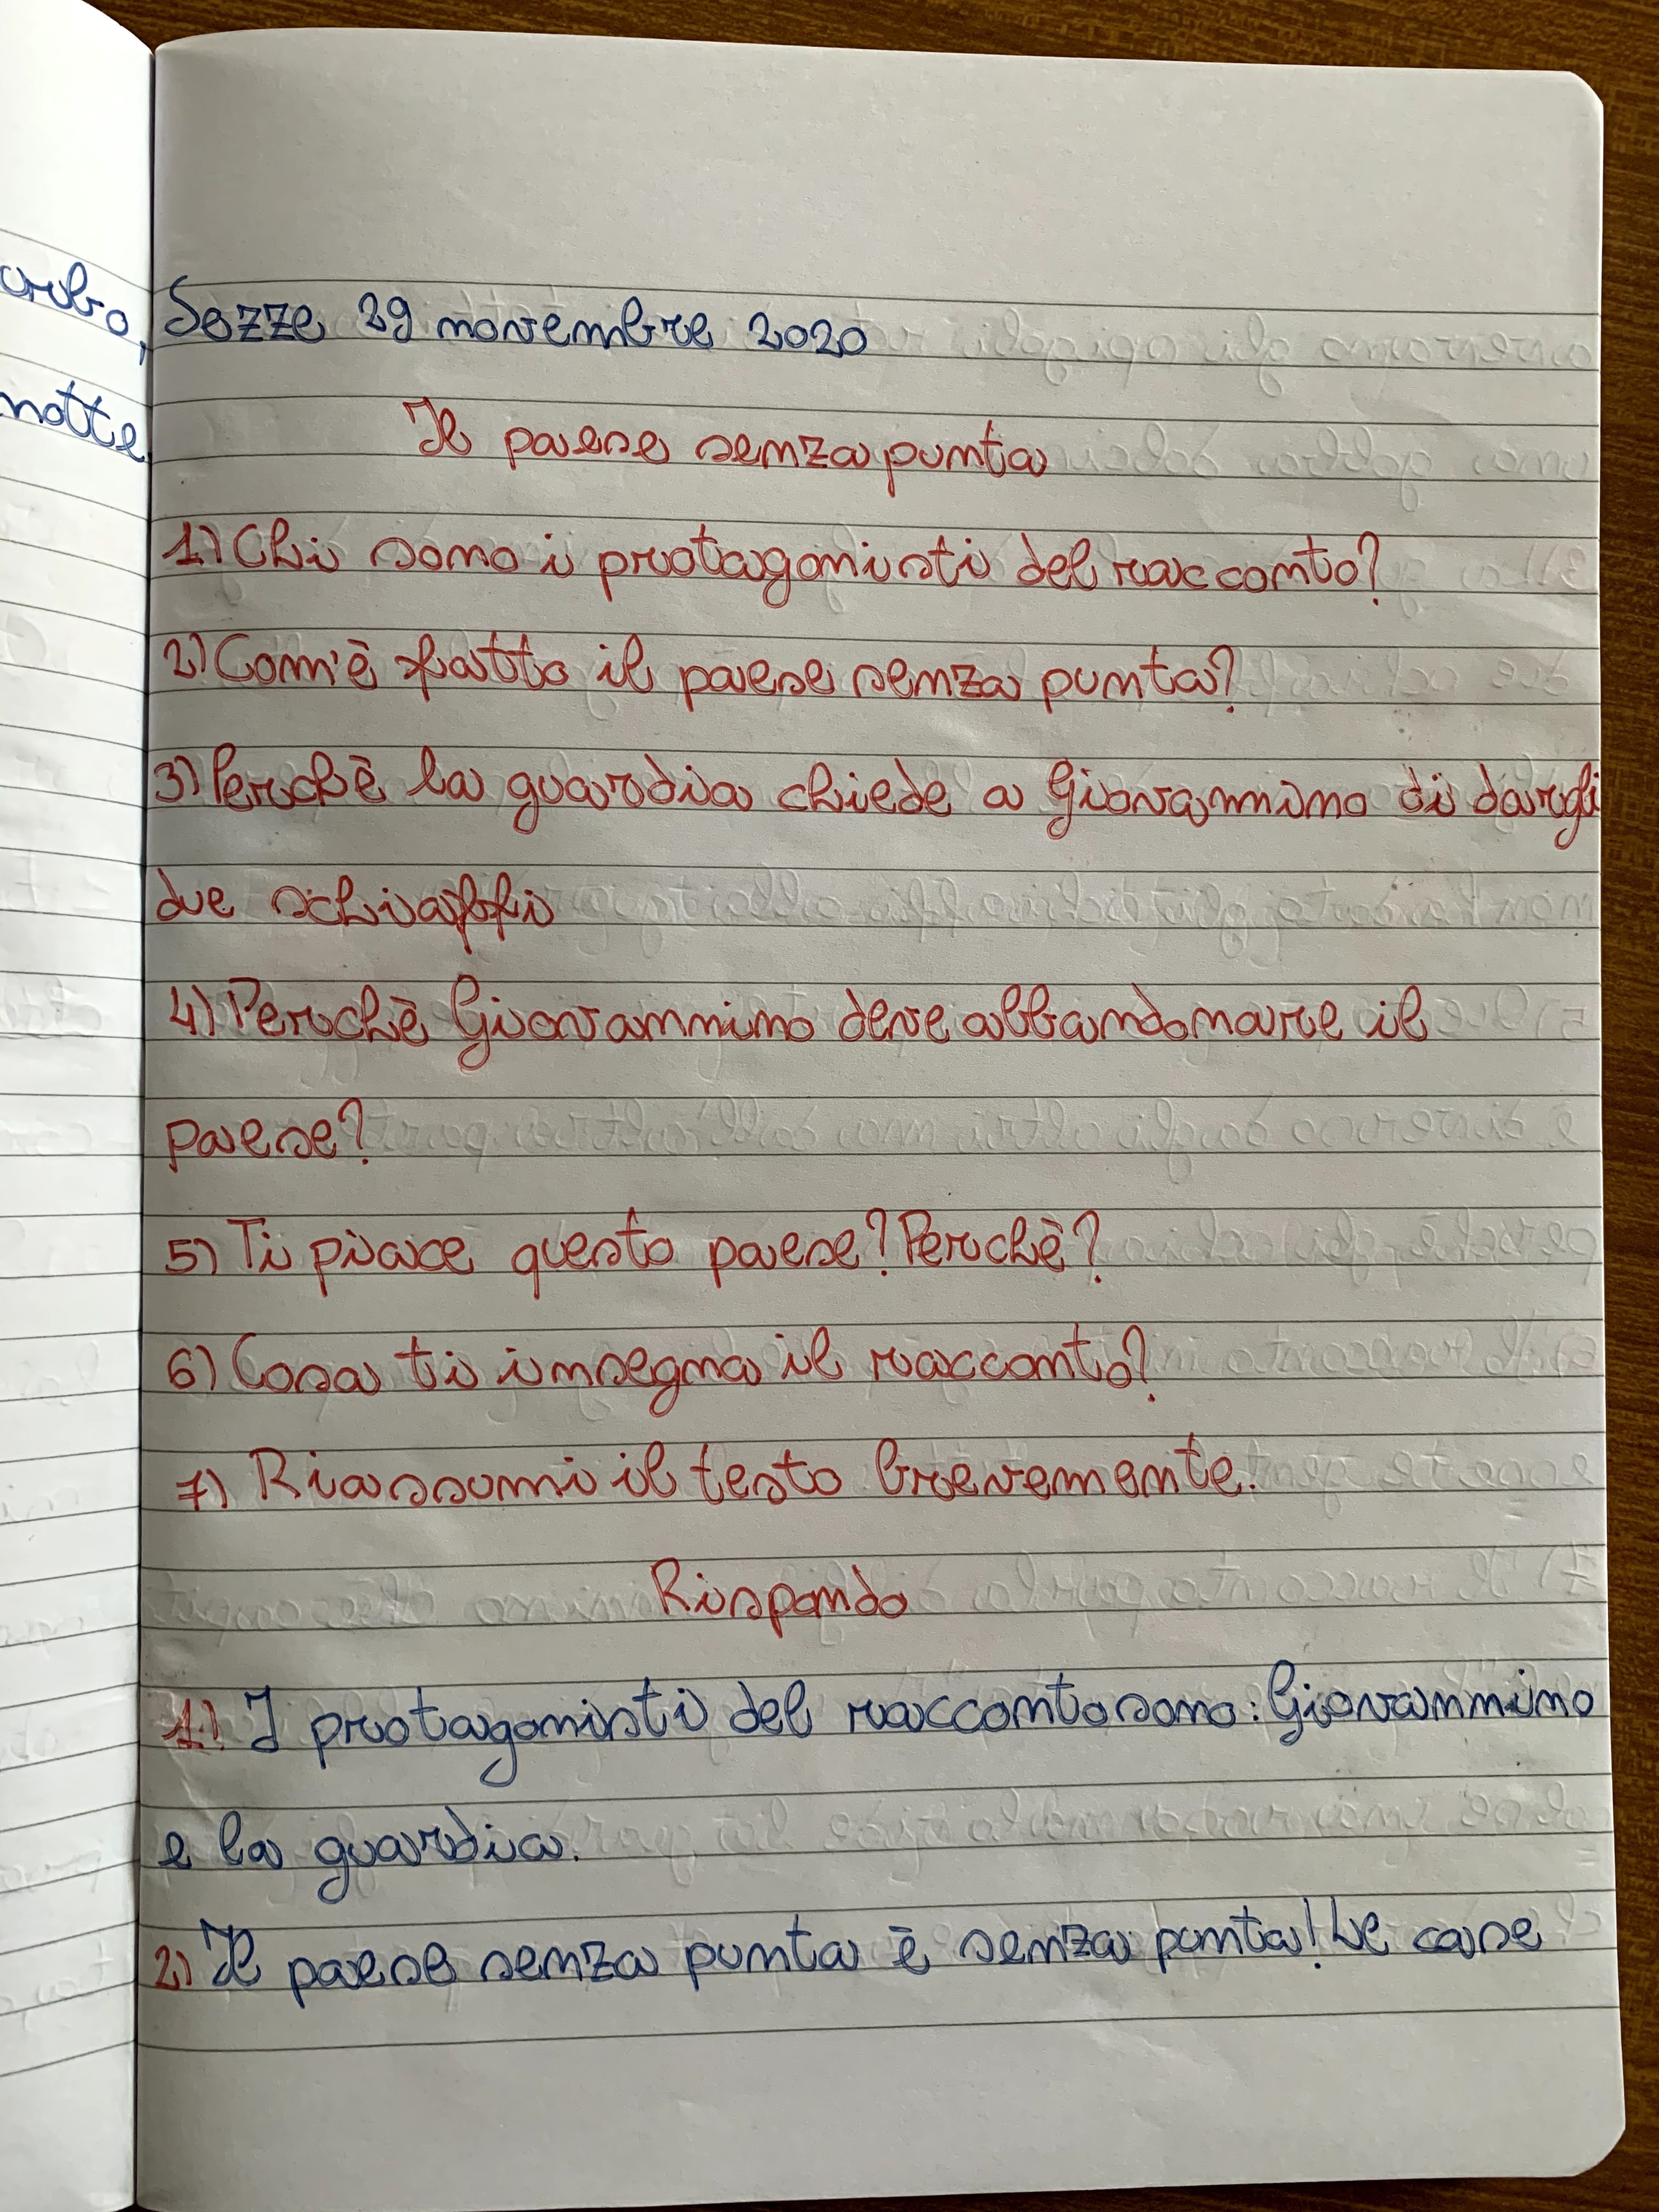 notte
Sezze 29 novembre 2020
Il paese senza punta
1) Chi sono i protagonisti del racconto?
2) Com'è fatto il paese senza punta?
3) Perchè la guardia chiede a Giovannino di dargli
due schiaffi
4) Perchè Giovannino deve abbandonare il
paese?
5) Ti piace questo paese? Perchè?
6) Cosa ti insegna il racconto?
7) Riassumi il testo brevemente.
Rispondo
1) I protagonisti del racconto sono: Giovannino
e la guardia.
2) Il paese senza punta è senza punta! Le case